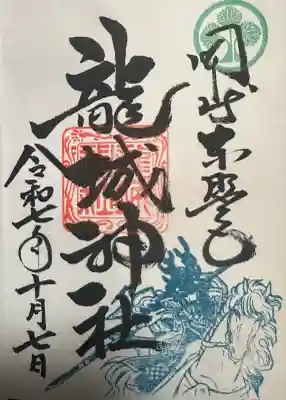 岡崎東照宮
龍城神社
令和七年十月七日